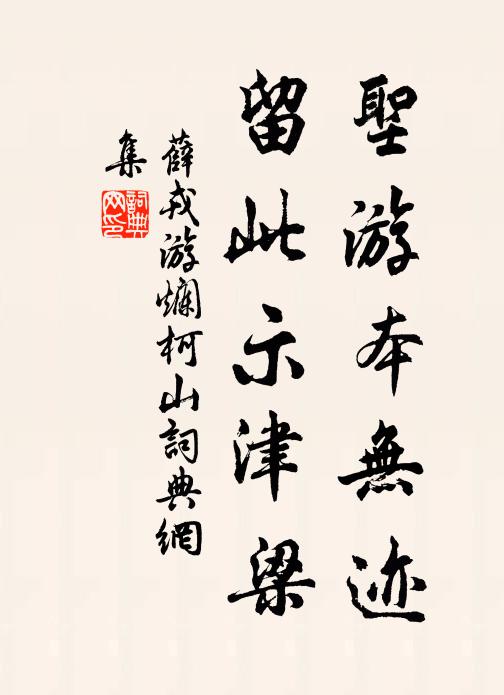 聖游本無迹
留此示津梁
薛戎游爛柯山詞典網
集
詞典
网印